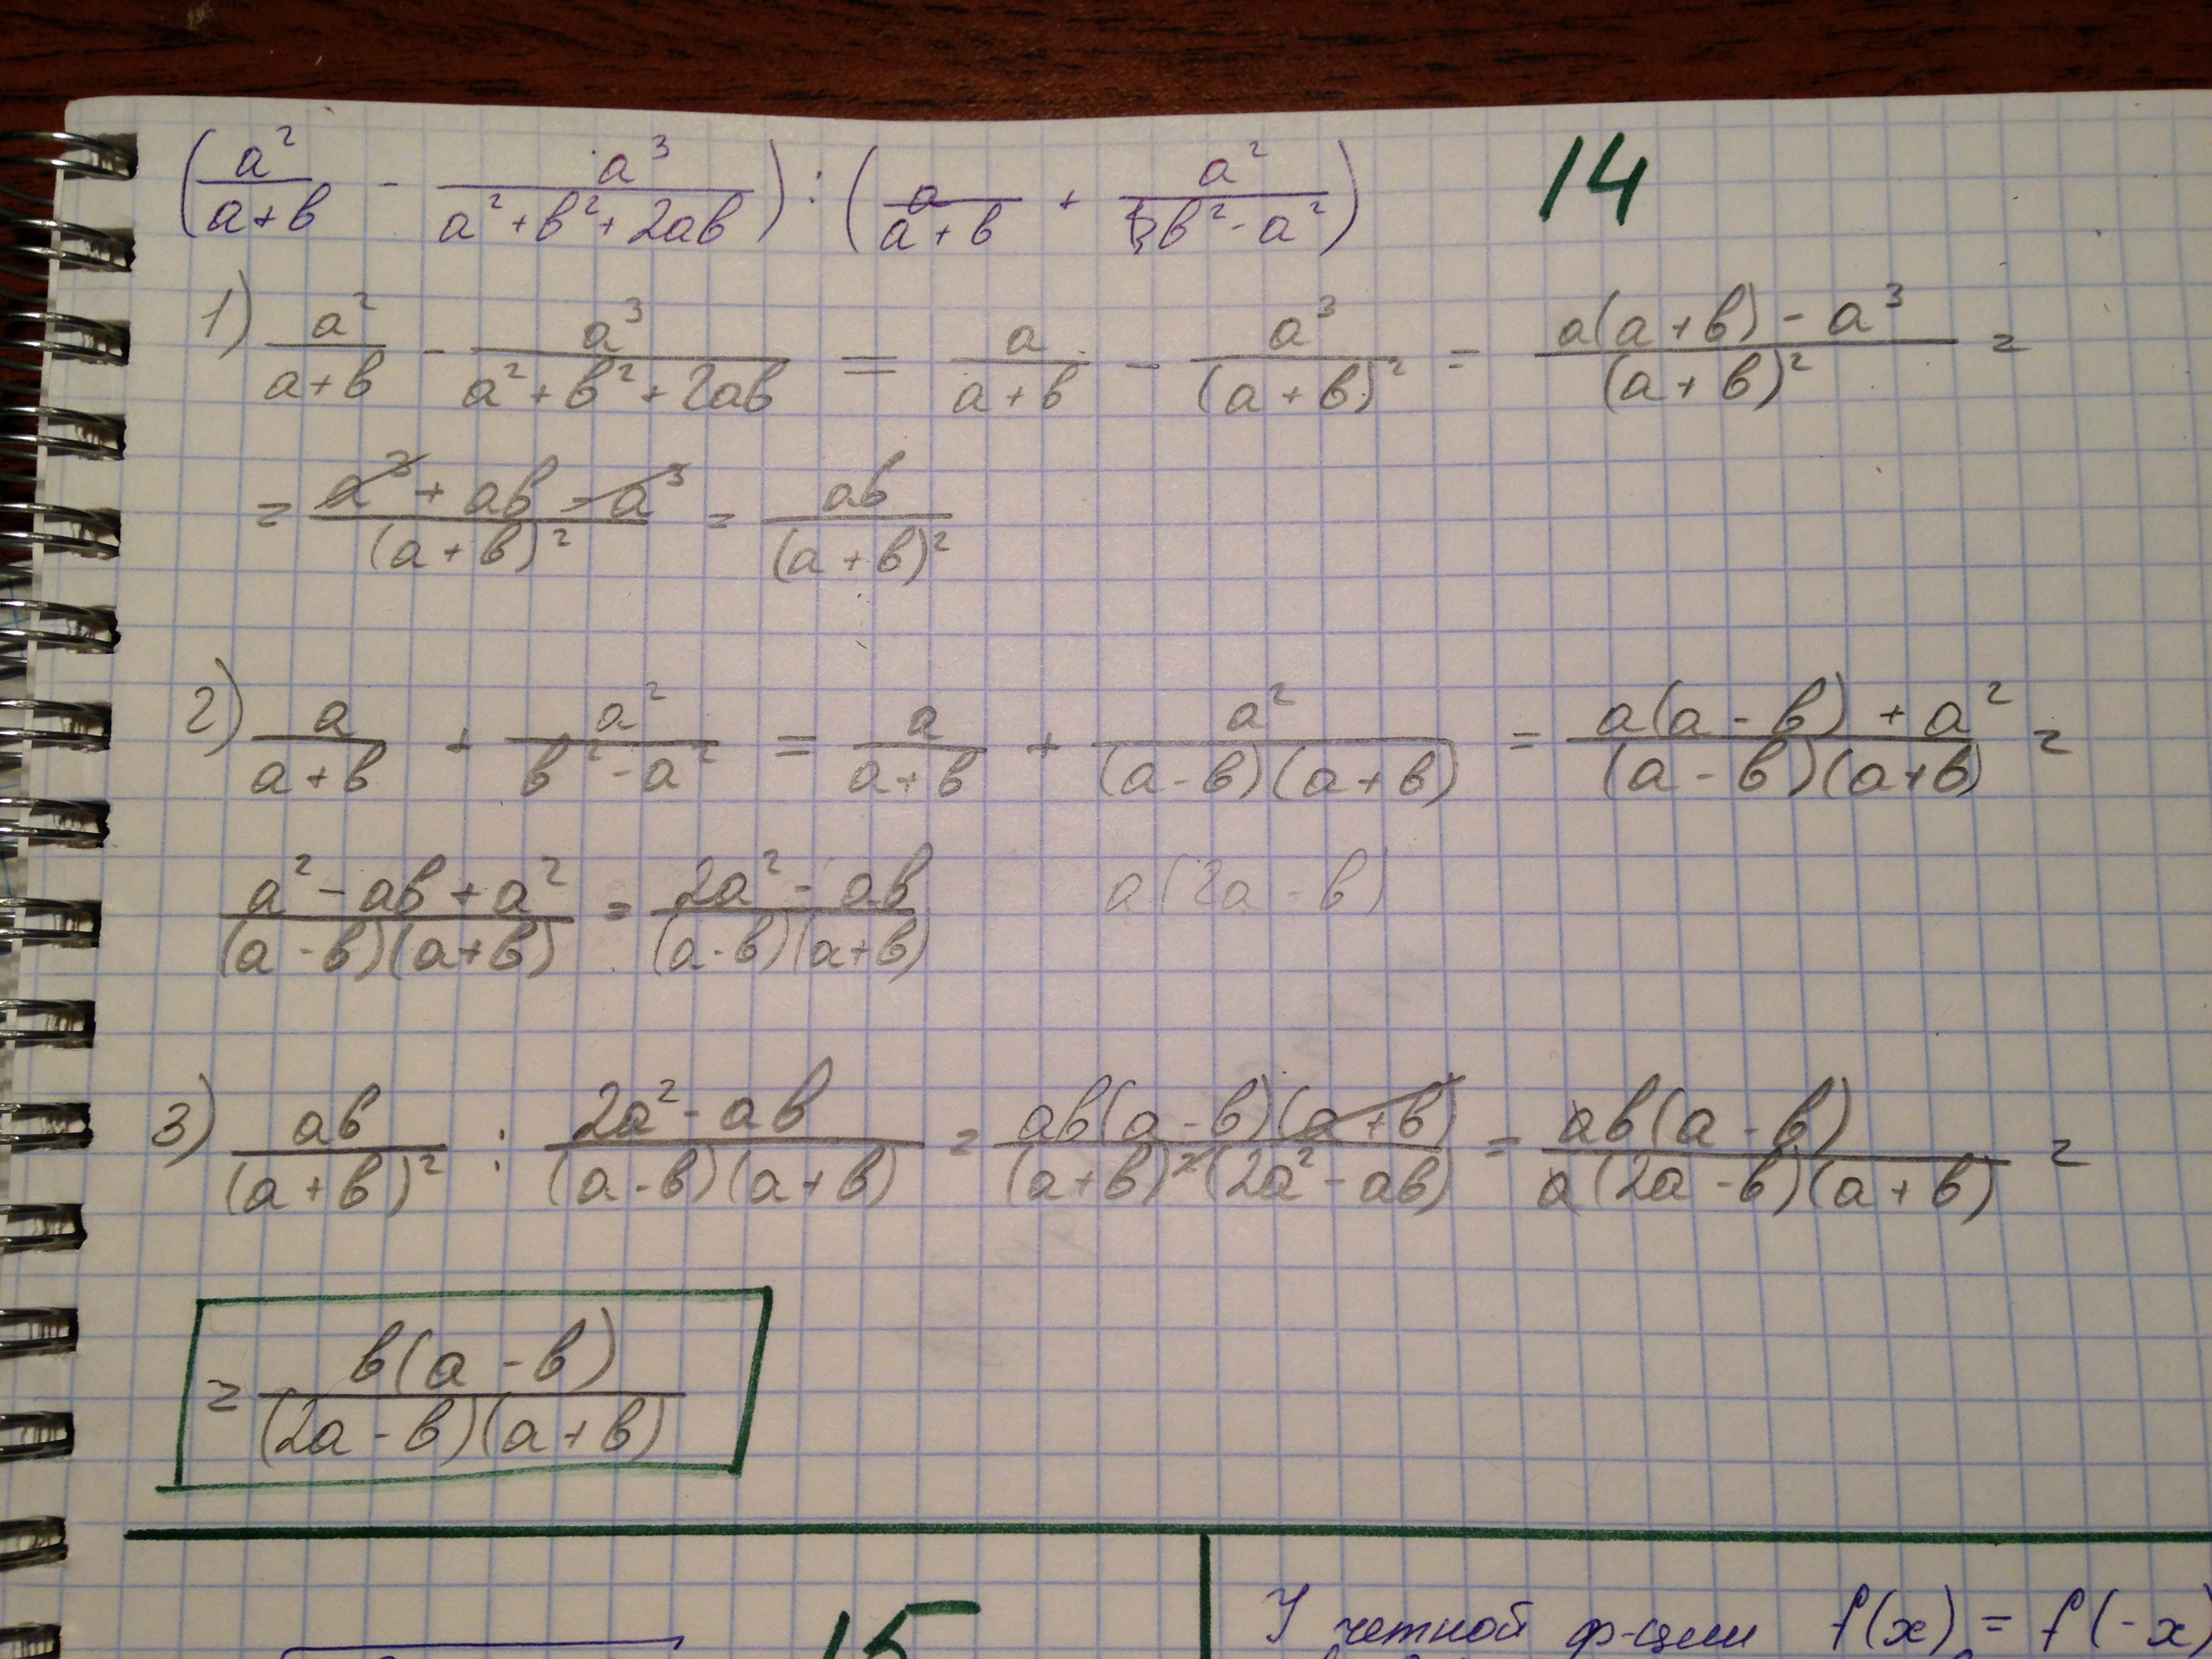 (a²/(a+b) - a³/(a²+b²+2ab)) : (a/(a+b) + a²/(b²-a²)) 14
1) a²/(a+b) - a³/(a²+b²+2ab) = a/(a+b) - a³/(a+b)² = (a(a+b) - a³)/(a+b)² =
= (a³ + ab - a³)/(a+b)² = ab/(a+b)²
2) a/(a+b) + a²/(b²-a²) = a/(a+b) + a²/((a-b)(a+b)) = (a(a-b) + a²)/((a-b)(a+b)) =
(a² - ab + a²)/((a-b)(a+b)) = (2a² - ab)/((a-b)(a+b)) a(2a-b)
3) ab/(a+b)² : (2a² - ab)/((a-b)(a+b)) = (ab(a-b)(a+b))/((a+b)²(2a² - ab)) = (ab(a-b))/(a(2a-b)(a+b)) =
= (b(a-b))/((2a-b)(a+b))
15
У четной ф-ции f(x) = f(-x)